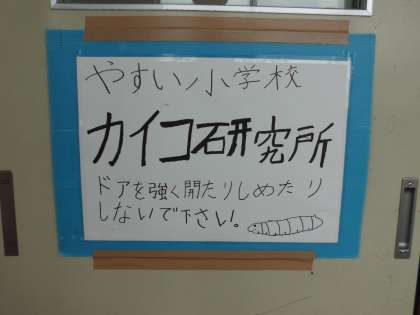 やすい小学校
カイコ研究所
ドアを強く開たりしめたり
しないで下さい!